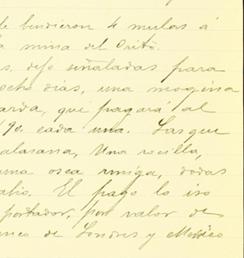 le bindieron 4 mulas á
la mina del Cristo.
s, dejo señaladas para
ocho dias, una moquina
arda, que pagará al
90. cada una. Las que
alasana, Una rocilla,
una osca rmiga, dodas
El pago lo iso
portador, por valor de
nco de Londres y México